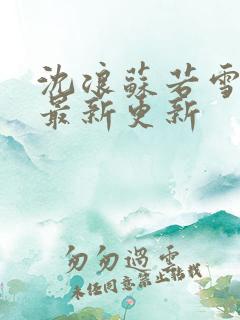 沈浪蘇若雪
最新更新
匆匆過雲
未经同意禁止转载